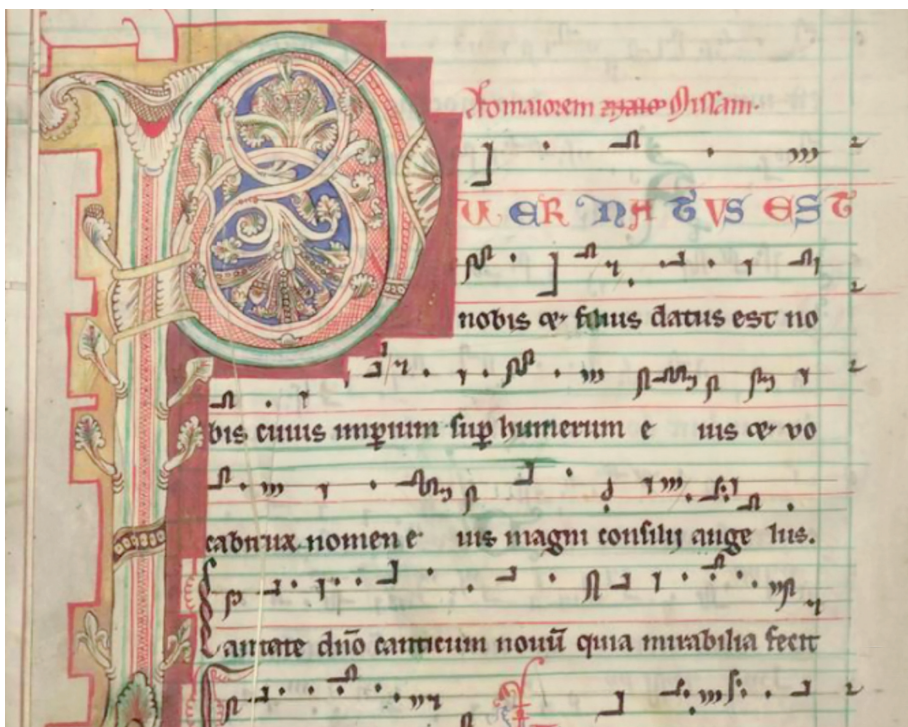 Ad maiorem missam.
PUER NATUS EST
nobis et filius datus est no
bis cuius impium sup humerum e ius et vo
cabitur nomen e ius magni consilij ange lus.
Cantate dno canticum novu quia mirabilia fecit